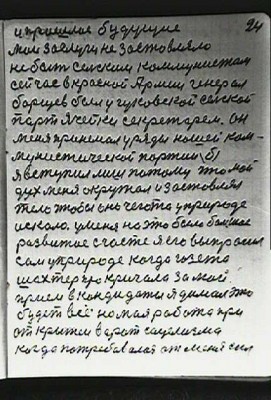 24
и прошлое будущие
мои заслуги не заставляло
не быть сельским коммунистом
сейчас в красной Армии генерал
барцев был у гуковской сельской
парт ячейки секретарем. он
меня принимал у ряды нашей ком-
мунистической партии, бы
я вступил лиш потому што мой
дух меня окружал и заставлял
тело чтобы онь чегото у природе
искало. у меня на это было большое
развитие счастье я его выпросил
сам у природе когда газета
шахтер про кричала за мой
прием в кандидаты я думал это
будеть всё но моя работа при
открытем ворот социализма
когда потребовалась от меня сил